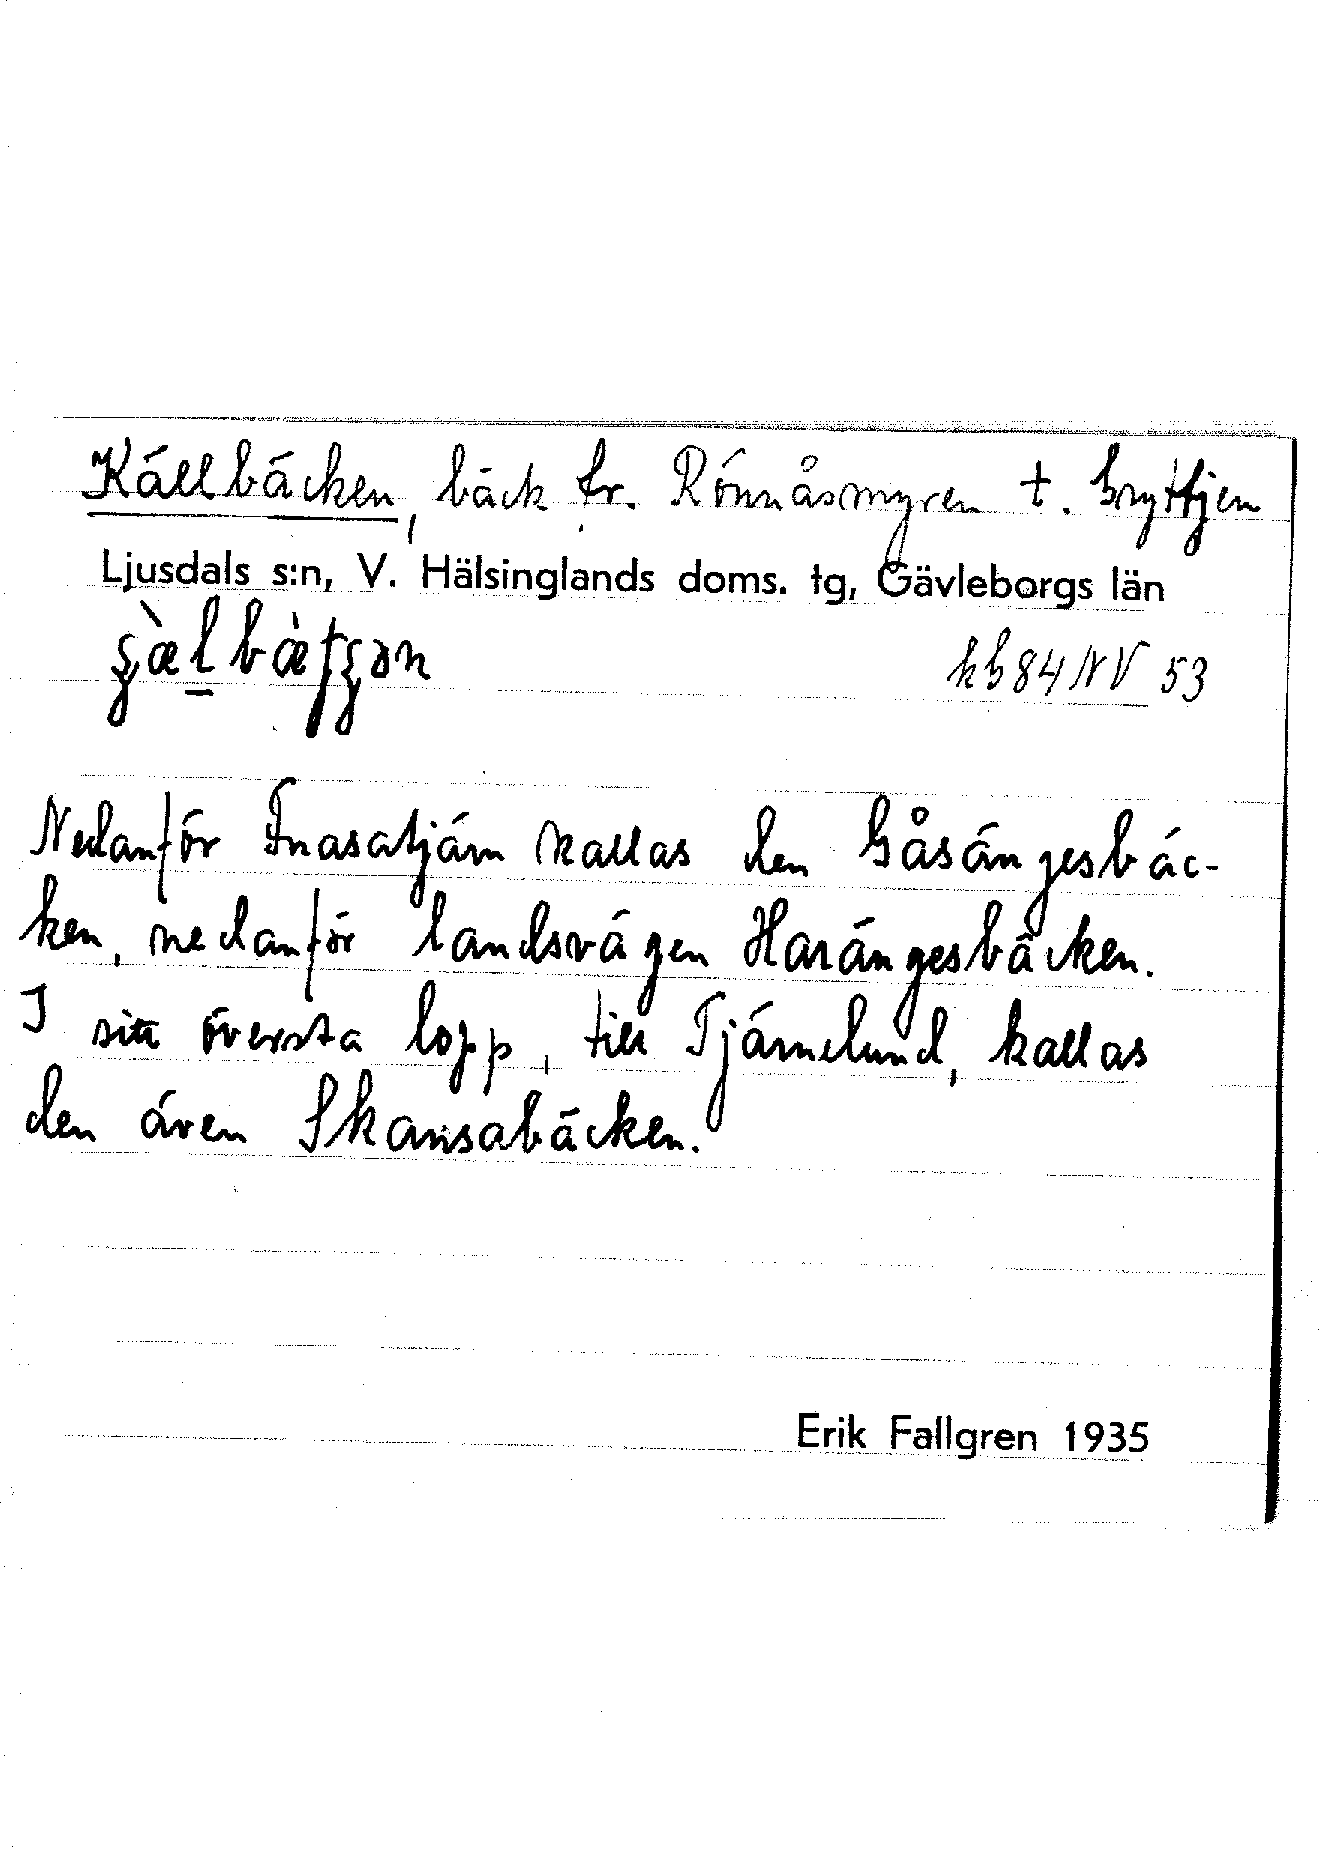 Källbäcken, bäck fr. Rönnåsmyren t. Gryttjen
Ljusdals s:n, V. Hälsinglands doms. tg, Gävleborgs län
53
Nedanför Fnasatjärn kallas den Gåsängesbäc-
ken, nedanför landsvägen Harängesbäcken.
I sitt översta lopp, till Tjärnelund, kallas
den även Skansabäcken.
Erik Fallgren 1935